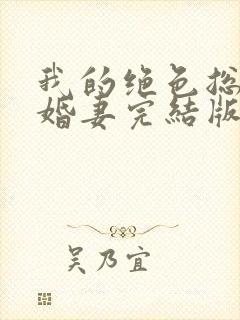 我的绝色总
婚妻完结版
吴乃宜